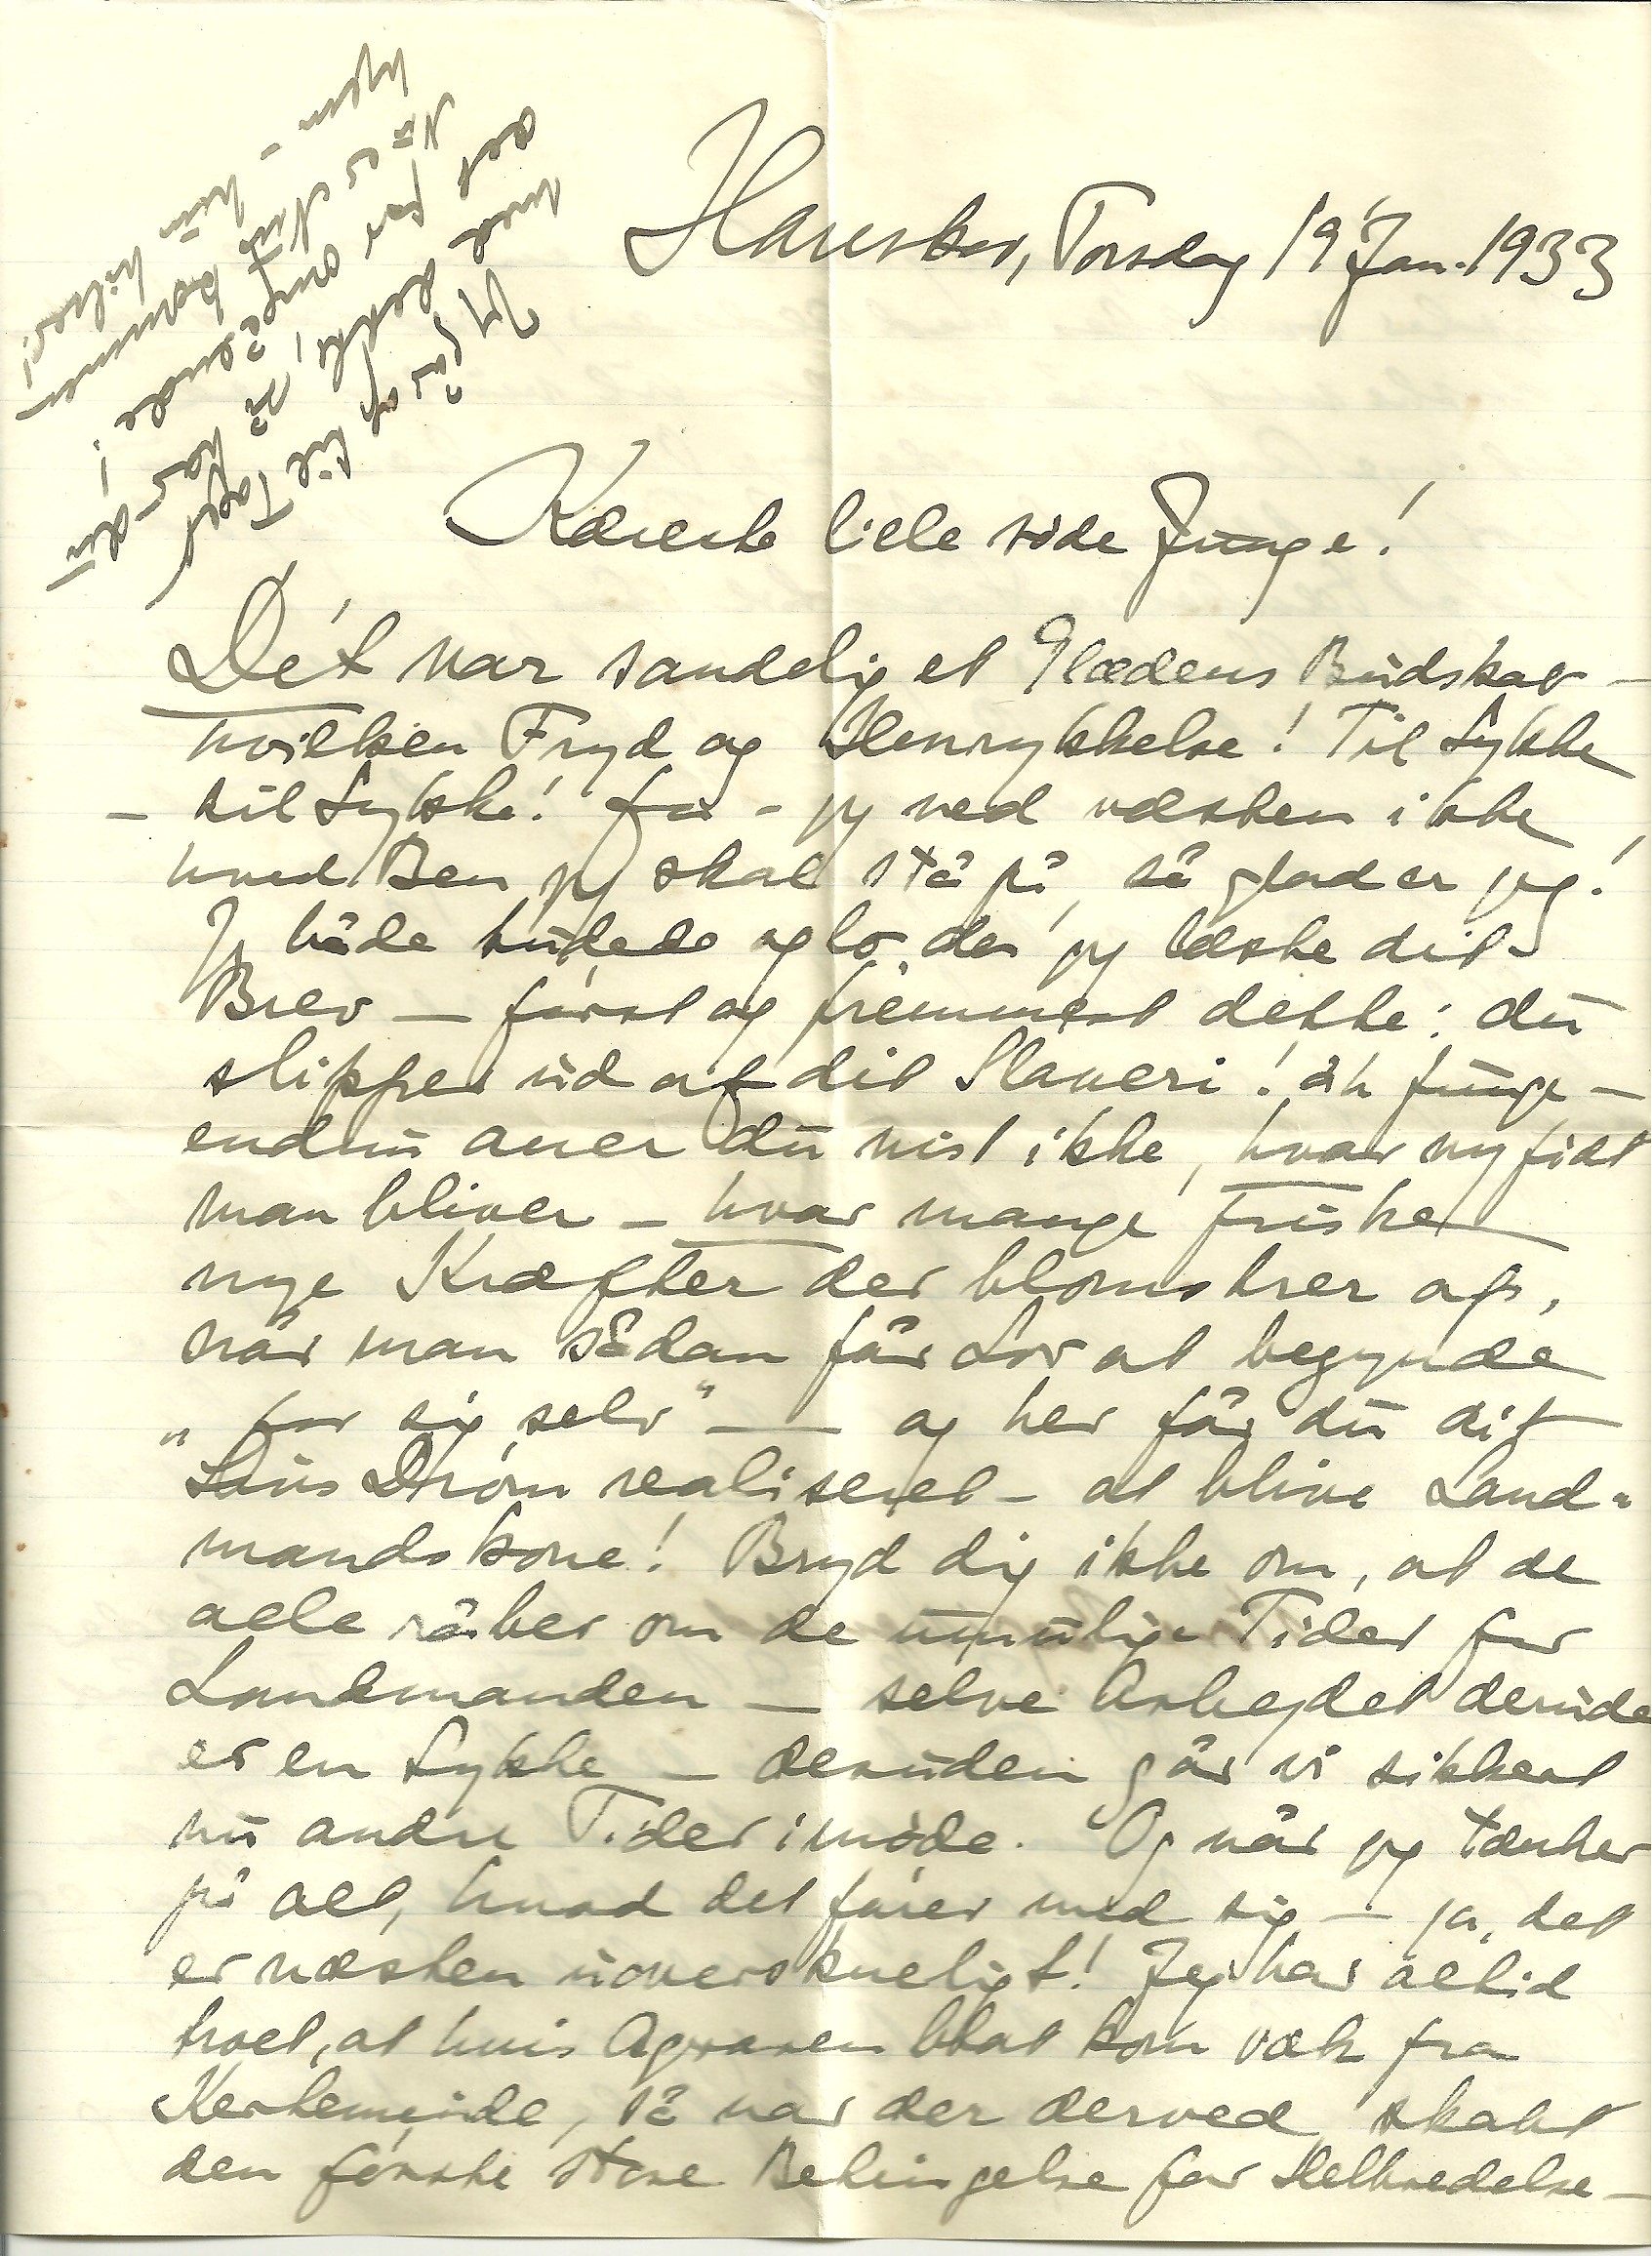 Hareskov, Torsdag 19 Jan. 1933
Kæreste lille søde Junge!
Dét var sandelig et Glædens Budskab –
hvilken Fryd og Henrykkelse! Til Lykke
– til Lykke! Ja – jeg ved næsten ikke
hvad Ben jeg skal stå på, så glad er jeg!
Jeg både tudede og lo, da jeg læste dit
Brev – først og fremmest dette: du
slipper ud af dit Slaveri! åh Junge –
endnu aner du vist ikke, hvor nyfidt
man bliver – hvor mange friske
nye Kræfter der blomstrer op,
når man sådan får Lov at begynde
„for sig selv" – og her får du dit
Livs Drøm realiseret – at blive Land-
mandskone! Bryd dig ikke om, at de
alle råber om de umulige Tider for
Landmanden – selve Arbejdet derude
er en Lykke – desuden går vi sikkert
nu andre Tider imøde. Og når jeg tænker
på alt, hvad det fører med sig – ja, det
er næsten uoverskueligt! Jeg har altid
troet, at hvis Agraren blot kom væk fra
Kerteminde, så var der derved skabt
den første store Betingelse for Helbredelse –
Jeg får og til Taget
den
det
Nu er kommen
hjem –